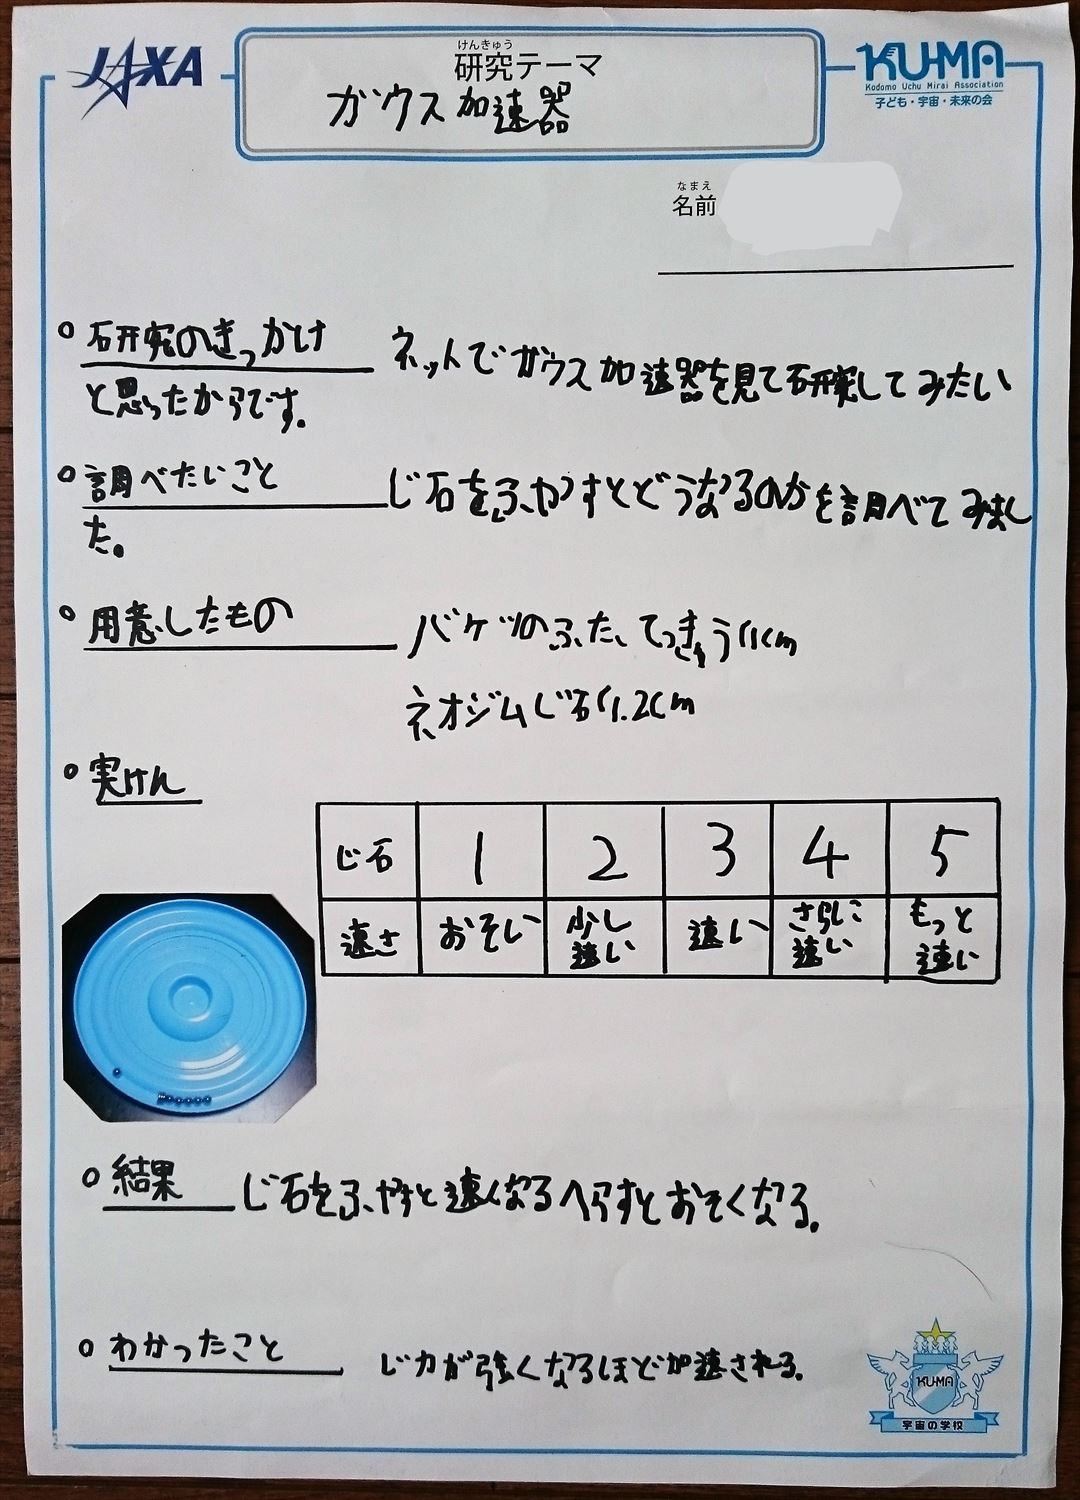 JAXA
けんきゅう
研究テーマ
ガウス加速器
KU-MA
Kodomo Uchu Mirai Association
子ども・宇宙・未来の会
なまえ
名前
○研究のきっかけ ネットでガウス加速器を見て研究してみたい
と思ったからです。
○調べたいこと じ石をふやすとどうなるのかを調べてみまし
た。
○用意したもの バケツのふた、てっきゅう1.1cm
ネオジムじ石1.2cm
○実けん
じ石 1 2 3 4 5
速さ おそい 少し速い 速い さらに速い もっと速い
○結果 じ石をふやすと速くなるへらすとおそくなる。
○わかったこと じ力が強くなるほど加速される。
KU-MA
宇宙の学校